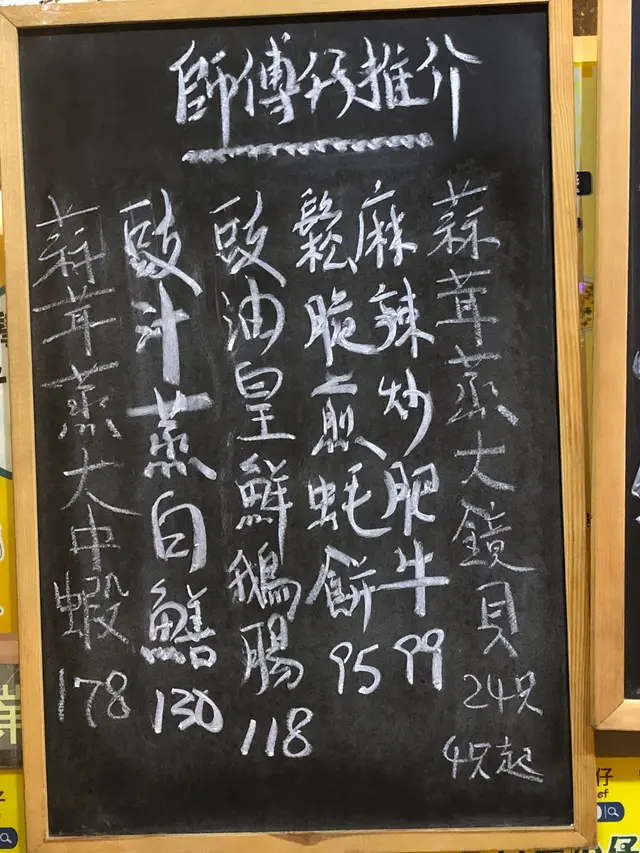 師傅仔推介
蒜茸蒸大鏡貝
24只
4只起
麻辣炒肥牛 99
鬆脆煎蚝餅 95
豉油皇鮮鵝腸 118
豉汁蒸白鱔 130
蒜茸蒸大中蝦 178
仔
ef